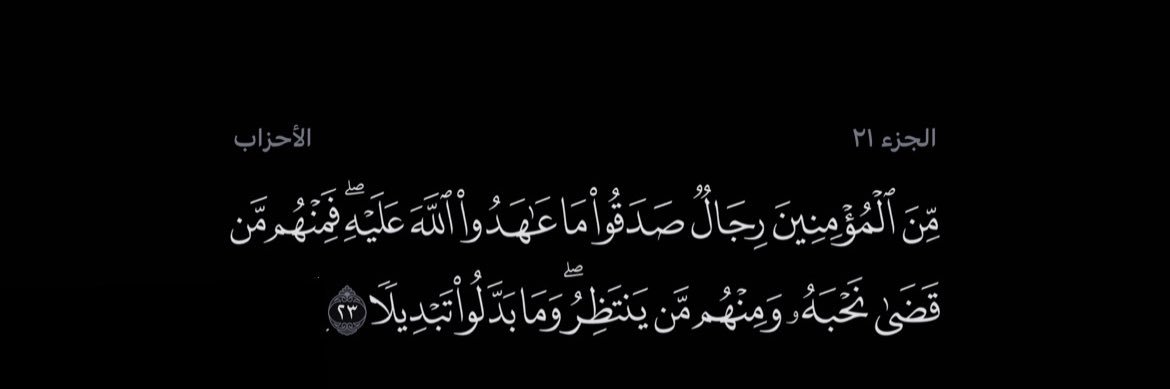 الجزء ٢١
الأحزاب
مِّنَ ٱلْمُؤْمِنِينَ رِجَالٌ صَدَقُوا۟ مَا عَـٰهَدُوا۟ ٱللَّهَ عَلَيْهِ ۖ فَمِنْهُم مَّن
قَضَىٰ نَحْبَهُۥ وَمِنْهُم مَّن يَنتَظِرُ ۖ وَمَا بَدَّلُوا۟ تَبْدِيلًا ٢٣